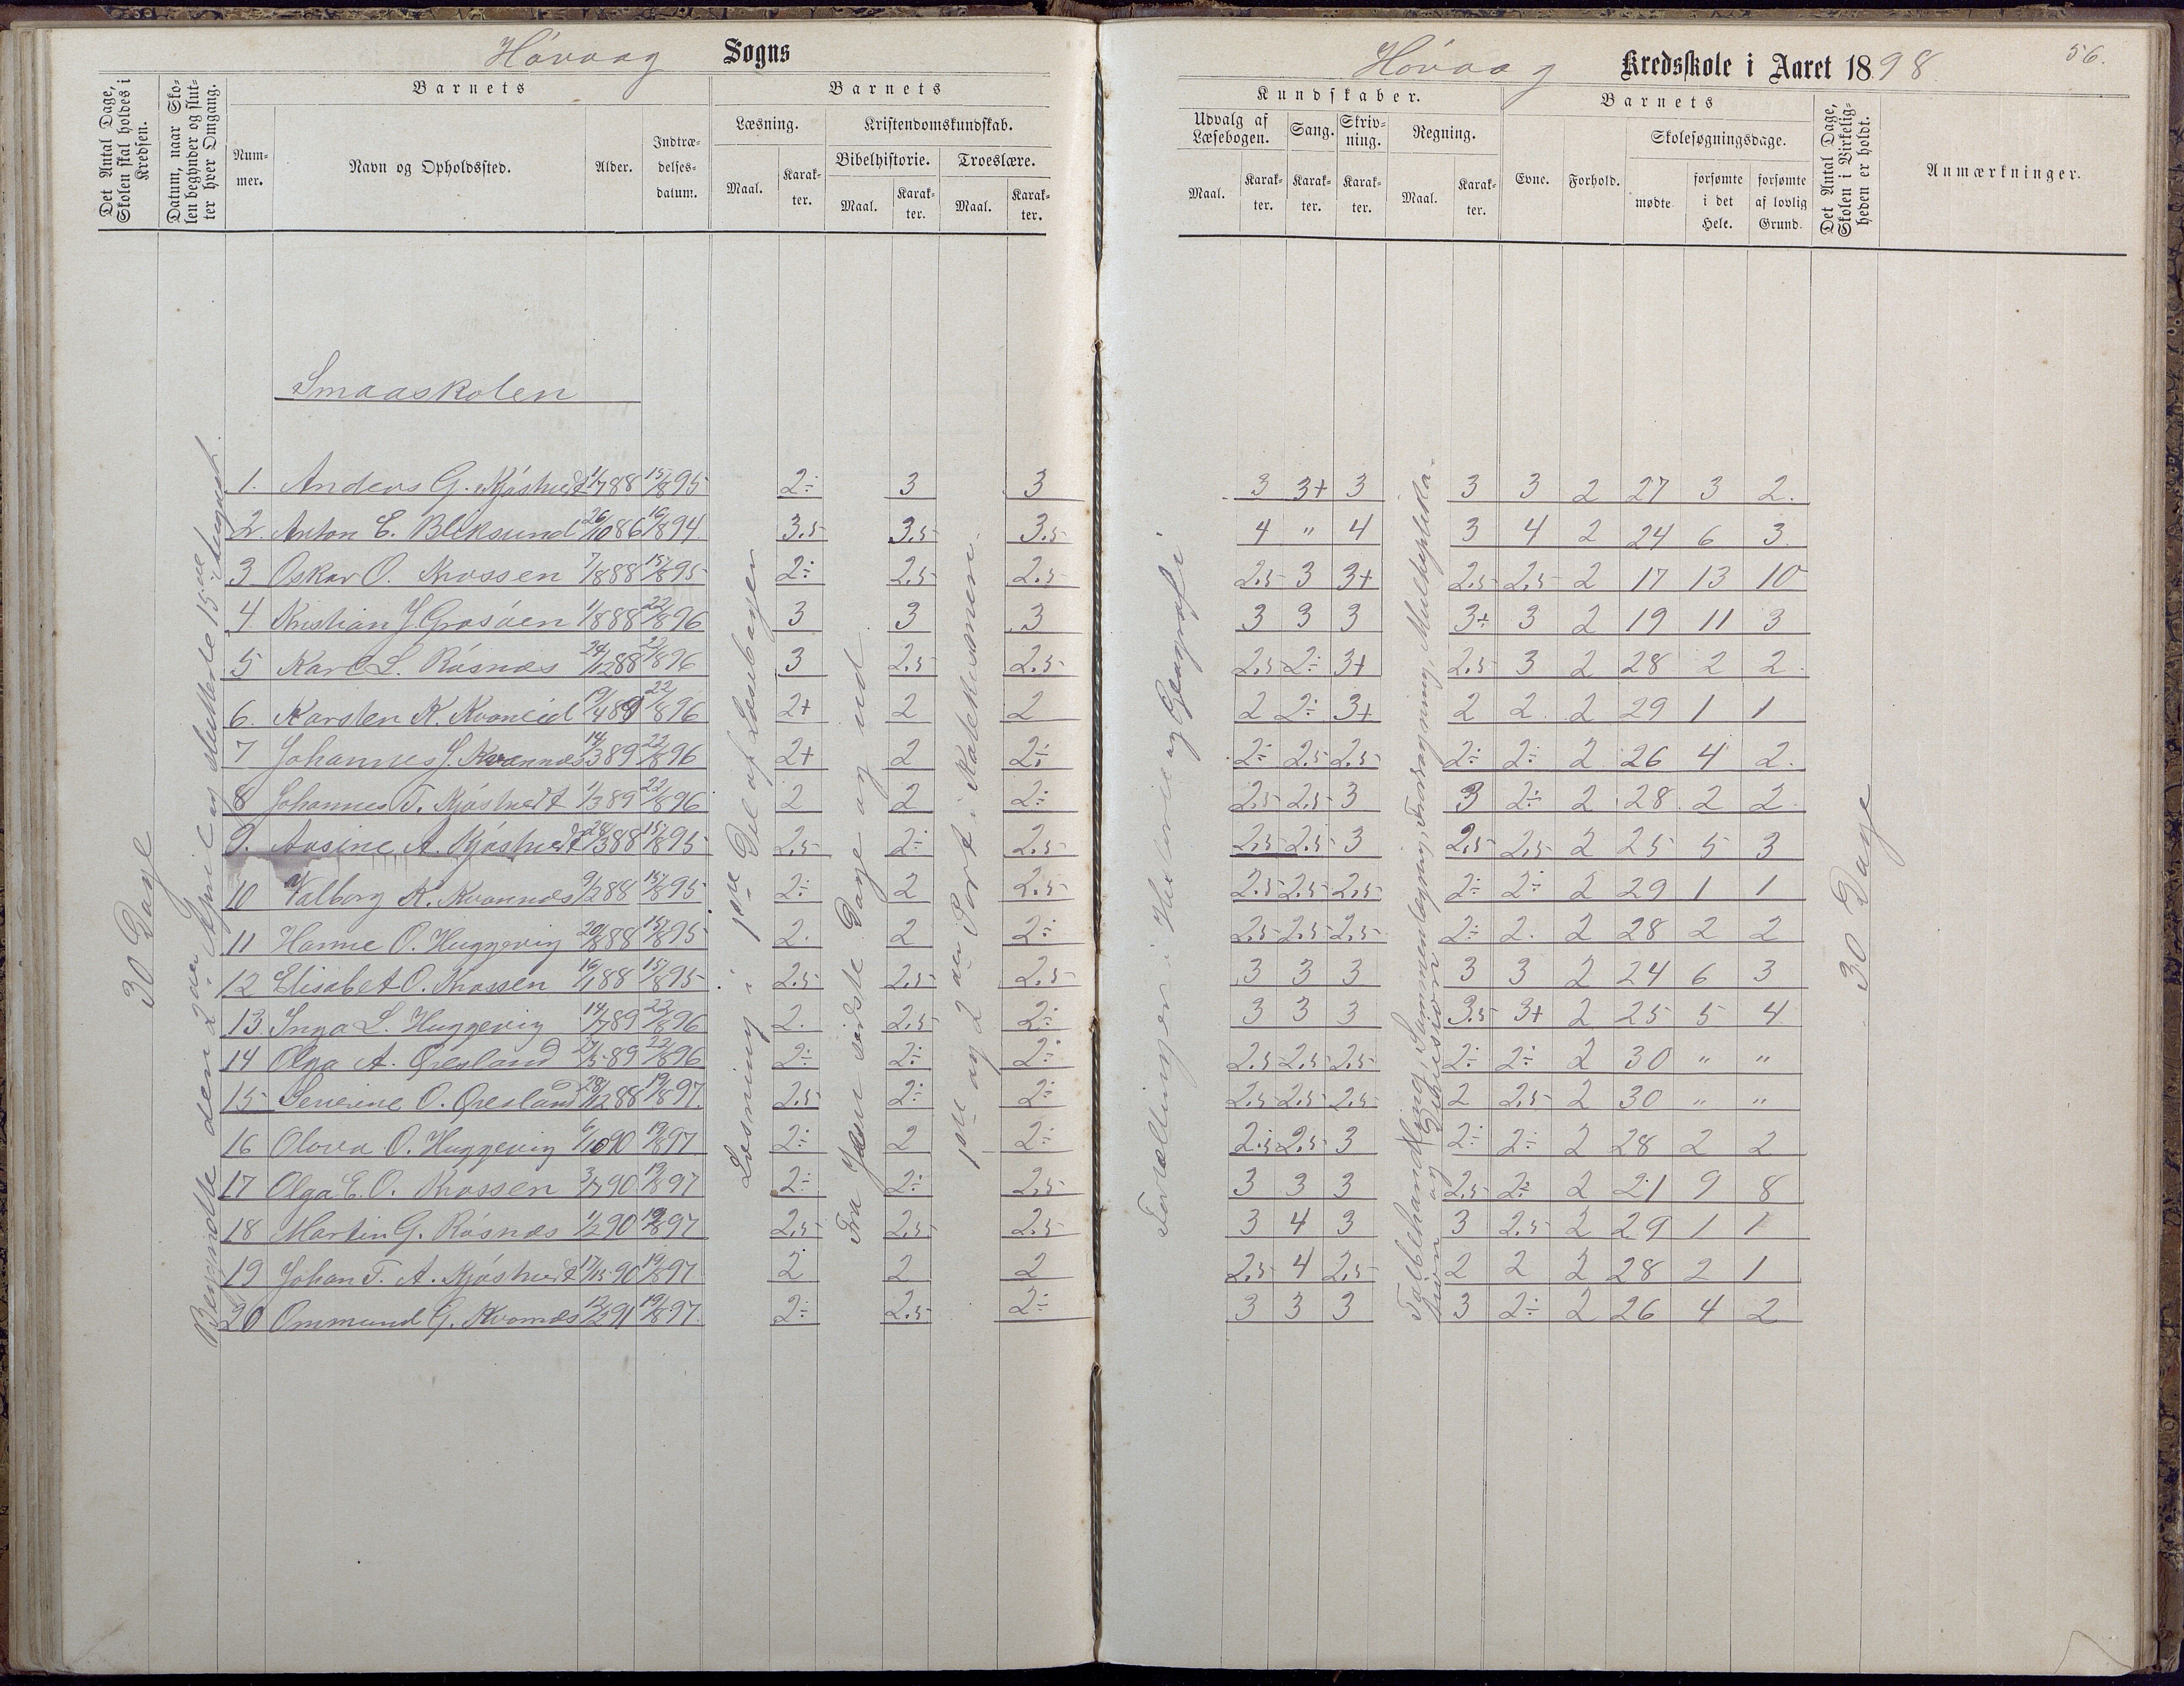 Høvaag Sogns
Det Antal Dage, Skolen skal holdes i Kredsen.
Datum, naar Skolen begynder og slutter hver Omgang.
Barnets
Nummer.
Navn og Opholdssted.
Alder.
Indtrædelsesdatum.
Barnets
Læsning.
Maal.
Karakter.
Kristendomskundskab.
Bibelhistorie.
Maal.
Karakter.
Troeslære.
Maal.
Karakter.
Smaaskolen
30 Dage
Begyndte den 2den April og sluttede 15de August.
Læsning i 1ste Del af Læsebogen
Fra Jesu sidste Dage og ud
1ste og 2den Part i Katekismen.
1. Anders G. Kjøstvedt 1/7 88 15/8 95 2÷ 3 3
2. Anton E. Bliksund 26/10 86 16/8 94. 3.5 3.5 3.5
3 Oskar O. Krossen 7/8 88 15/8 95 2÷ 2.5 2.5
4 Kristian J. Grosøen 1/8 88 22/8 96 3 3 3
5 Karl L. Røsnæs 24/12 88 22/8 96 3 2.5 2.5
6. Karsten K. Kvaneid 19/4 89 22/8 96 2+ 2 2
7 Johannes J. Kvannes 14/3 89 22/8 96 2+ 2 2÷
8 Johannes T. Kjøstvedt 1/3 89 22/8 96 2 2 2÷
9. Aasine A. Kjøstvedt 28/3 88 15/8 95 2.5 2÷ 2.5
10 Valborg K. Kvannes 9/2 88 15/8 95 2÷ 2 2.5
11 Hanne O. Huggevig 20/8 88 15/8 95 2. 2 2÷
12 Elisabet O. Krossen 16/1 88 15/8 95 2.5 2.5 2.5
13. Inga L. Huggevig 14/7 89 22/8 96 2. 2.5 2÷
14 Olga A. Øresland 27/5 89 22/8 96 2÷ 2÷ 2÷
15 Severine O. Øresland 28/12 88 19/8 97. 2.5 2÷ 2÷
16 Olova O. Huggevig 6/10 90 19/8 97. 2÷ 2 2÷
17 Olga E. O. Krossen 3/7 90 19/8 97 2÷ 2÷ 2.5
18 Martin G. Røsnæs 1/2 90 19/8 97 2.5 2.5 2.5
19 Johan T. A. Kjøstvedt 17/15 90 19/8 97 2 2 2
20 Ommund G. Kvannes 12/2 91 19/8 97. 2÷ 2.5 2÷
Høvaag Kredsskole i Aaret 1898
56.
Kundskaber.
Udvalg af Læsebogen.
Maal.
Karakter.
Sang.
Karakter.
Skrivning.
Karakter.
Regning.
Maal.
Karakter.
Barnets
Evne.
Forhold.
Skolesøgningsdage.
mødte
forsømte i det Hele.
forsømte af lovlig Grund.
Det Antal Dage, Skolen i Virkeligheden er holdt.
Anmærkninger.
Fortællinger i Historie og Geografi
Talbehandling, Sammenlægning, Fradragning, Multiplikation og Division
30 Dage
3 3+ 3 3 3 2 27 3 2.
4 " 4 3 4 2 24 6 3.
2.5 3 3+ 2.5 2.5 2 17 13 10
3 3 3 3÷ 3 2 19 11 3
2.5 2÷ 3+ 2.5 3 2 28 2 2.
2 2÷ 3+ 2 2. 2 29 1 1
2÷ 2.5 2.5 2÷ 2÷ 2 26 4 2.
2.5 2.5 3 3 2÷ 2 28 2 2
2.5 2.5 3 2.5 2.5 2 25 5 3
2.5 2.5 2.5 2÷ 2÷ 2 29 1 1
2.5 2.5 2.5 2÷ 2. 2 28 2 2
3 3 3 3 3 2 24 6 3
3 3 3 3.5 3+ 2 25 5 4
2.5 2.5 2.5 2÷ 2÷ 2 30 " "
2.5 2.5 2.5 2 2.5 2 30 " "
2.5 2.5 3 2÷ 2÷ 2 28 2 2
3 3 3 2.5 2÷ 2 21 9 8
3 4 3 3 2.5 2 29 1 1
2.5 4 2.5 2 2 2 28 2 1
3 3 3 3 2÷ 2 26 4 2